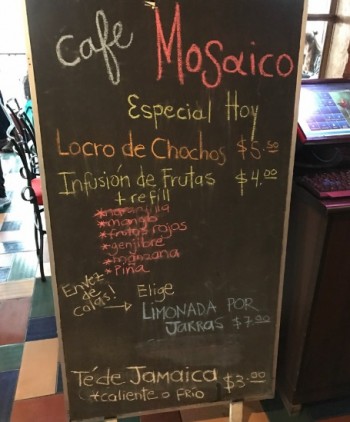 cafe Mosaico
Especial Hoy
Locro de Chochos $5.50
Infusión de Frutas $4.00
+ refill
*naranjilla
*mango
*frutas rojos
*genjibre
*manzana
*Piña
En vez
de
colas! → Elige
LIMONADA POR
JARRAS $7.00
Té de JAMAICA $3.00
*CALIENTE O FRIO